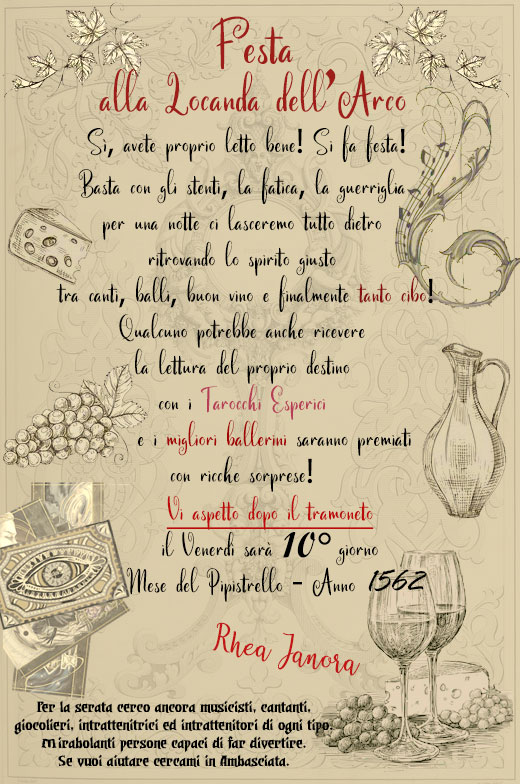 Festa
alla Locanda dell'Arco
Sì, avete proprio letto bene! Si fa festa!
Basta con gli stenti, la fatica, la guerriglia
per una notte ci lasceremo tutto dietro
ritrovando lo spirito giusto
tra canti, balli, buon vino e finalmente tanto cibo!
Qualcuno potrebbe anche ricevere
la lettura del proprio destino
con i Tarocchi Esperici
e i migliori ballerini saranno premiati
con ricche sorprese!
Vi aspetto dopo il tramoneto
il Venerdì sarà 10° giorno
Mese del Pipistrello - Anno 1562
Rhea Janora
Per la serata cerco ancora musicisti, cantanti,
giocolieri, intrattenitrici ed intrattenitori di ogni tipo.
Mirabolanti persone capaci di far divertire.
Se vuoi aiutare cercami in Ambasciata.